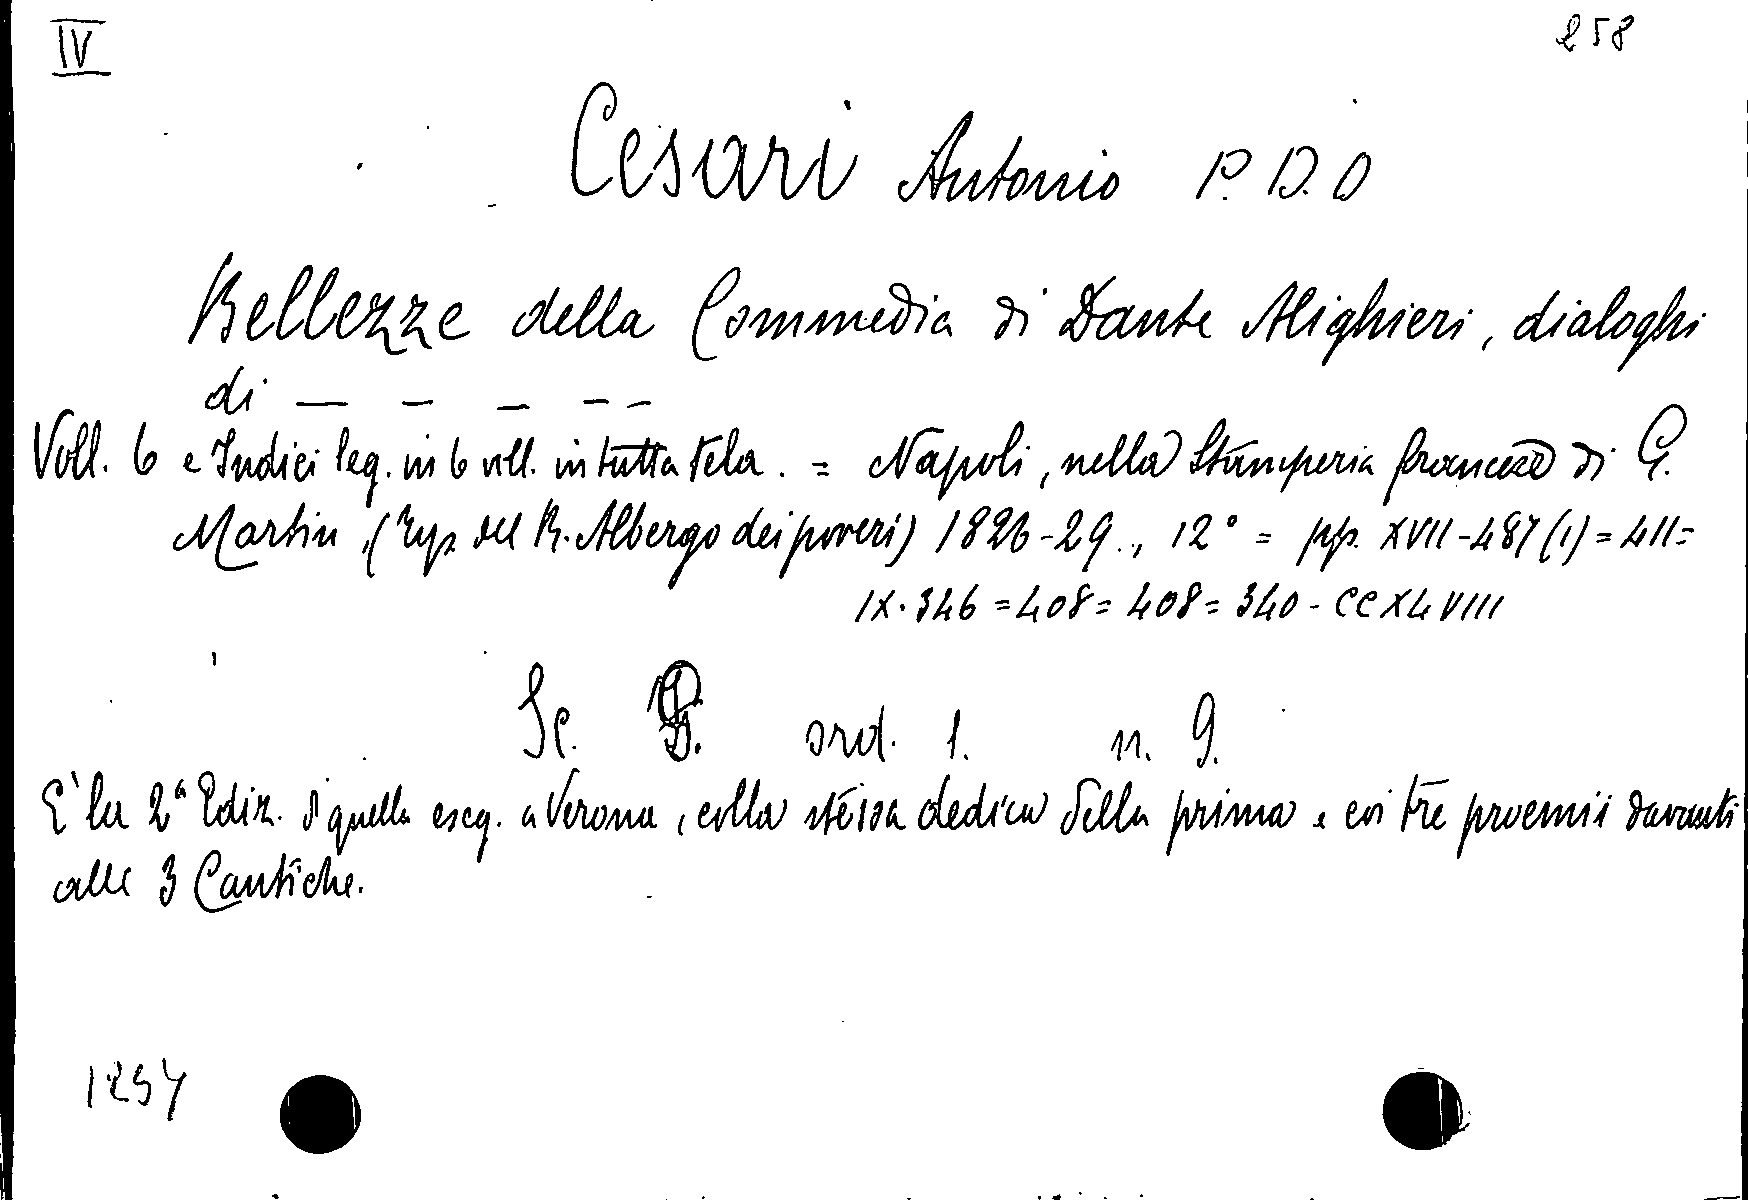 IV
258
Cesari Antonio P. D. O
Bellezze della Commedia di Dante Alighieri, dialoghi
di — – – – –
Voll. 6 e Indici leg. in 6 voll. in tutta tela. = Napoli, nella Stamperia francese di G.
Martin, (Tip. del R. Albergo dei poveri) 1826-29., 12° = pp. XVII-487(1) = 411=
IX. 346 = 408 = 408 = 340 - CCXLVIII
Sc. ord. 1. n. 9.
E' la 2ª Ediz. di quella eseg. a Verona, colla stessa dedica della prima e coi tre proemii davanti
alle 3 Cantiche.